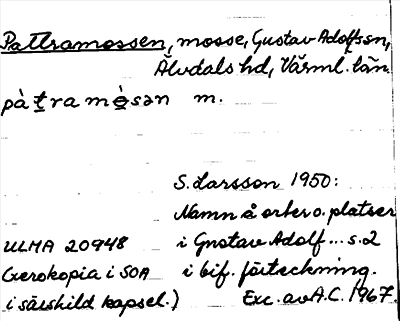 Pattramossen, mosse, Gustav Adolfs sn,
Älvdals hd, Värml. län.
pàt̲ramọ̀sən m.
S. Larsson 1950:
Namn å orter o. platser
ULMA 20948 i Gustav Adolf ... s. 2
(Xerokopia i SOA i bif. förteckning.
i särskild kapsel.) Exc. av A.C. 1967.